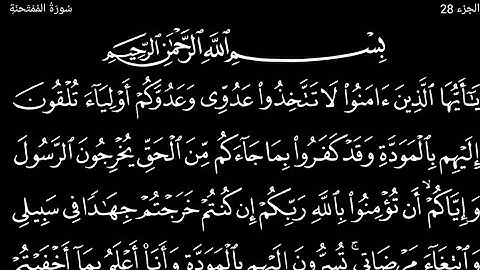 الجزء 28
سُورَةُ المُمْتَحنَةِ
بِسْمِ ٱللَّهِ ٱلرَّحْمَٰنِ ٱلرَّحِيمِ
يَٰٓأَيُّهَا ٱلَّذِينَ ءَامَنُوا۟ لَا تَتَّخِذُوا۟ عَدُوِّى وَعَدُوَّكُمْ أَوْلِيَآءَ تُلْقُونَ
إِلَيْهِم بِٱلْمَوَدَّةِ وَقَدْ كَفَرُوا۟ بِمَا جَآءَكُم مِّنَ ٱلْحَقِّ يُخْرِجُونَ ٱلرَّسُولَ
وَإِيَّاكُمْ ۙ أَن تُؤْمِنُوا۟ بِٱللَّهِ رَبِّكُمْ إِن كُنتُمْ خَرَجْتُمْ جِهَٰدًا فِى سَبِيلِى
وَٱبْتِغَآءَ مَرْضَاتِى ۚ تُسِرُّونَ إِلَيْهِم بِٱلْمَوَدَّةِ وَأَنَا۠ أَعْلَمُ بِمَآ أَخْفَيْتُمْ